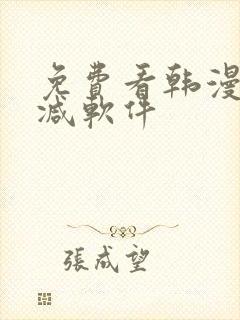 免費看韩漫
減軟件
張成望